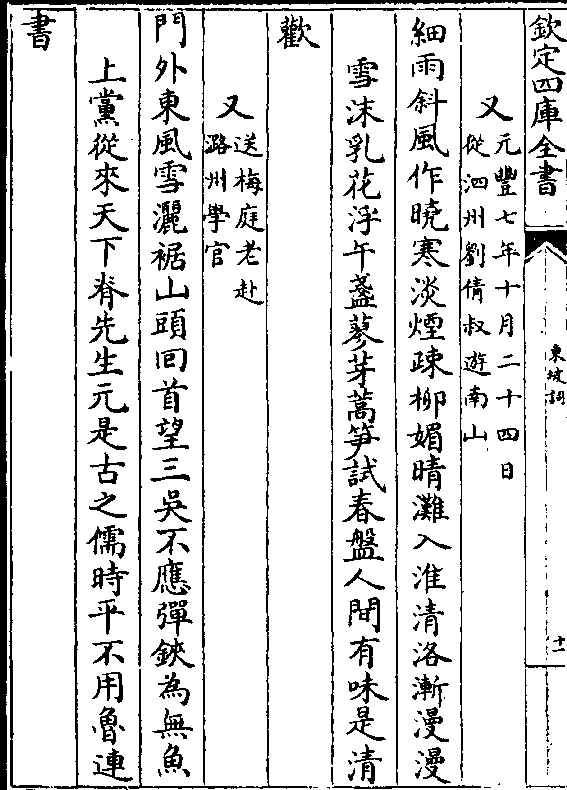 欽定四庫全書
東坡詞
十一
又元豐七年十月二十四日
從泗州劉倩叔遊南山
細雨斜風作曉寒淡煙疎柳媚晴灘入淮清洛漸漫漫
雪沫乳花浮午盞蓼芽蒿筍試春盤人間有味是清
歡
又送梅庭老赴
潞州學官
門外東風雪灑裾山頭回首望三吳不應彈鋏為無魚
上黨從來天下脊先生元是古之儒時平不用魯連
書